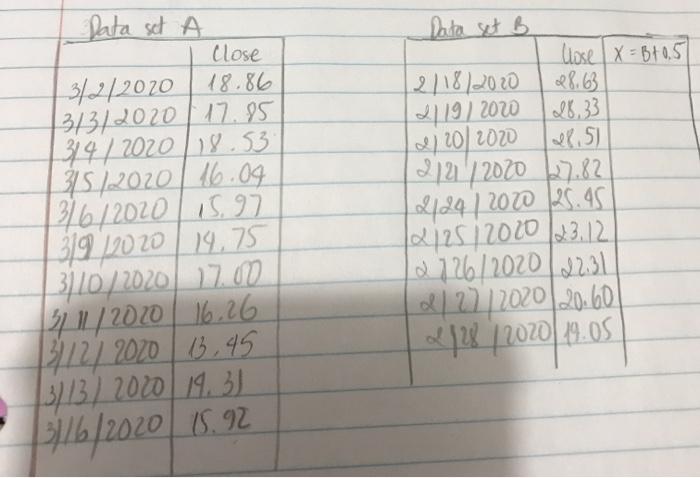 Data set A
Close
3/2/2020 18.86
3/3/2020 17.85
3/4/2020 18.53
3/5/2020 16.04
3/6/2020 15.97
3/9/2020 14.75
3/10/2020 17.00
3/11/2020 16.26
3/12/2020 13.45
3/13/2020 14.31
3/16/2020 15.92
Data set B
Close X = B+0.5
2/18/2020 28.63
2/19/2020 28.33
2/20/2020 28.51
2/21/2020 27.82
2/24/2020 25.45
2/25/2020 23.12
2/26/2020 22.31
2/27/2020 20.60
2/28/2020 19.05